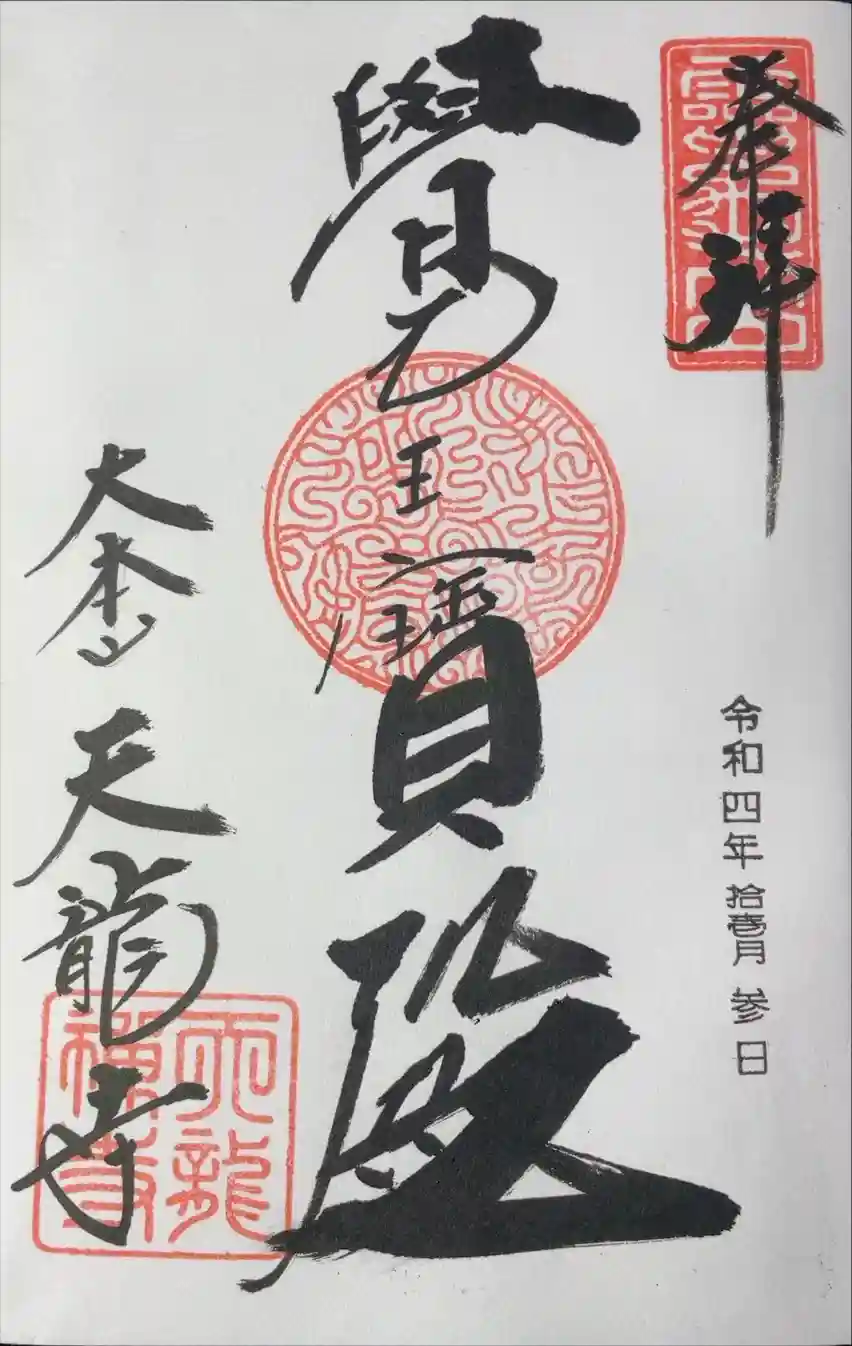 奉拝
令和四年拾壱月参日
覺王寶殿
大本山天龍寺
天龍禅寺